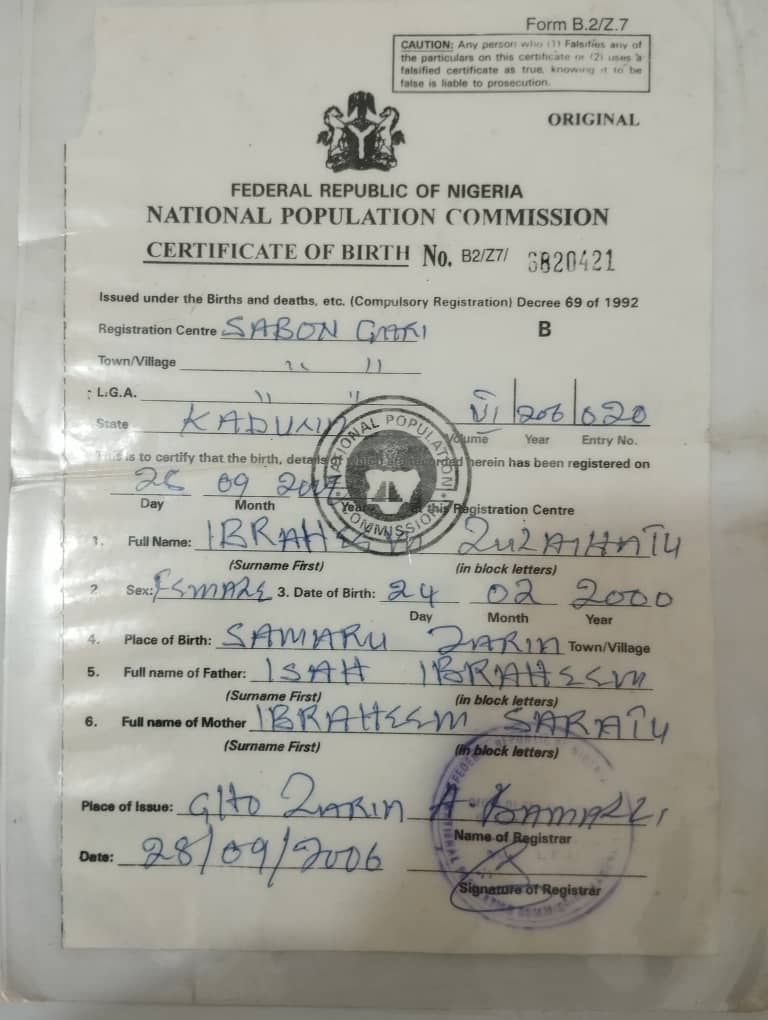 Form B.2/Z.7
CAUTION: Any person who (1) Falsifies any of
the particulars on this certificate or (2) uses a
falsified certificate as true, knowing it to be
false is liable to prosecution.
ORIGINAL
FEDERAL REPUBLIC OF NIGERIA
NATIONAL POPULATION COMMISSION
CERTIFICATE OF BIRTH No. B2/Z7/ 6820421
Issued under the Births and deaths, etc. (Compulsory Registration) Decree 69 of 1992
Registration Centre SABON GARI B
Town/Village " "
L.G.A. " "
State KADUNA VI 206 020
Volume Year Entry No.
This is to certify that the birth, details of which are recorded herein has been registered on
28 09
Day Month Year at this Registration Centre
NATIONAL POPULATION COMMISSION
1. Full Name: IBRAHEEM ZULAIHATU
(Surname First) (in block letters)
2. Sex: FEMALE 3. Date of Birth: 24 02 2000
Day Month Year
4. Place of Birth: SAMARU ZARIA Town/Village
5. Full name of Father: ISAH IBRAHEEM
(Surname First) (in block letters)
6. Full name of Mother IBRAHEEM SARATU
(Surname First) (in block letters)
Place of Issue: ZARIA A BAMALLI
Name of Registrar
Date: 28/09/2006
Signature of Registrar